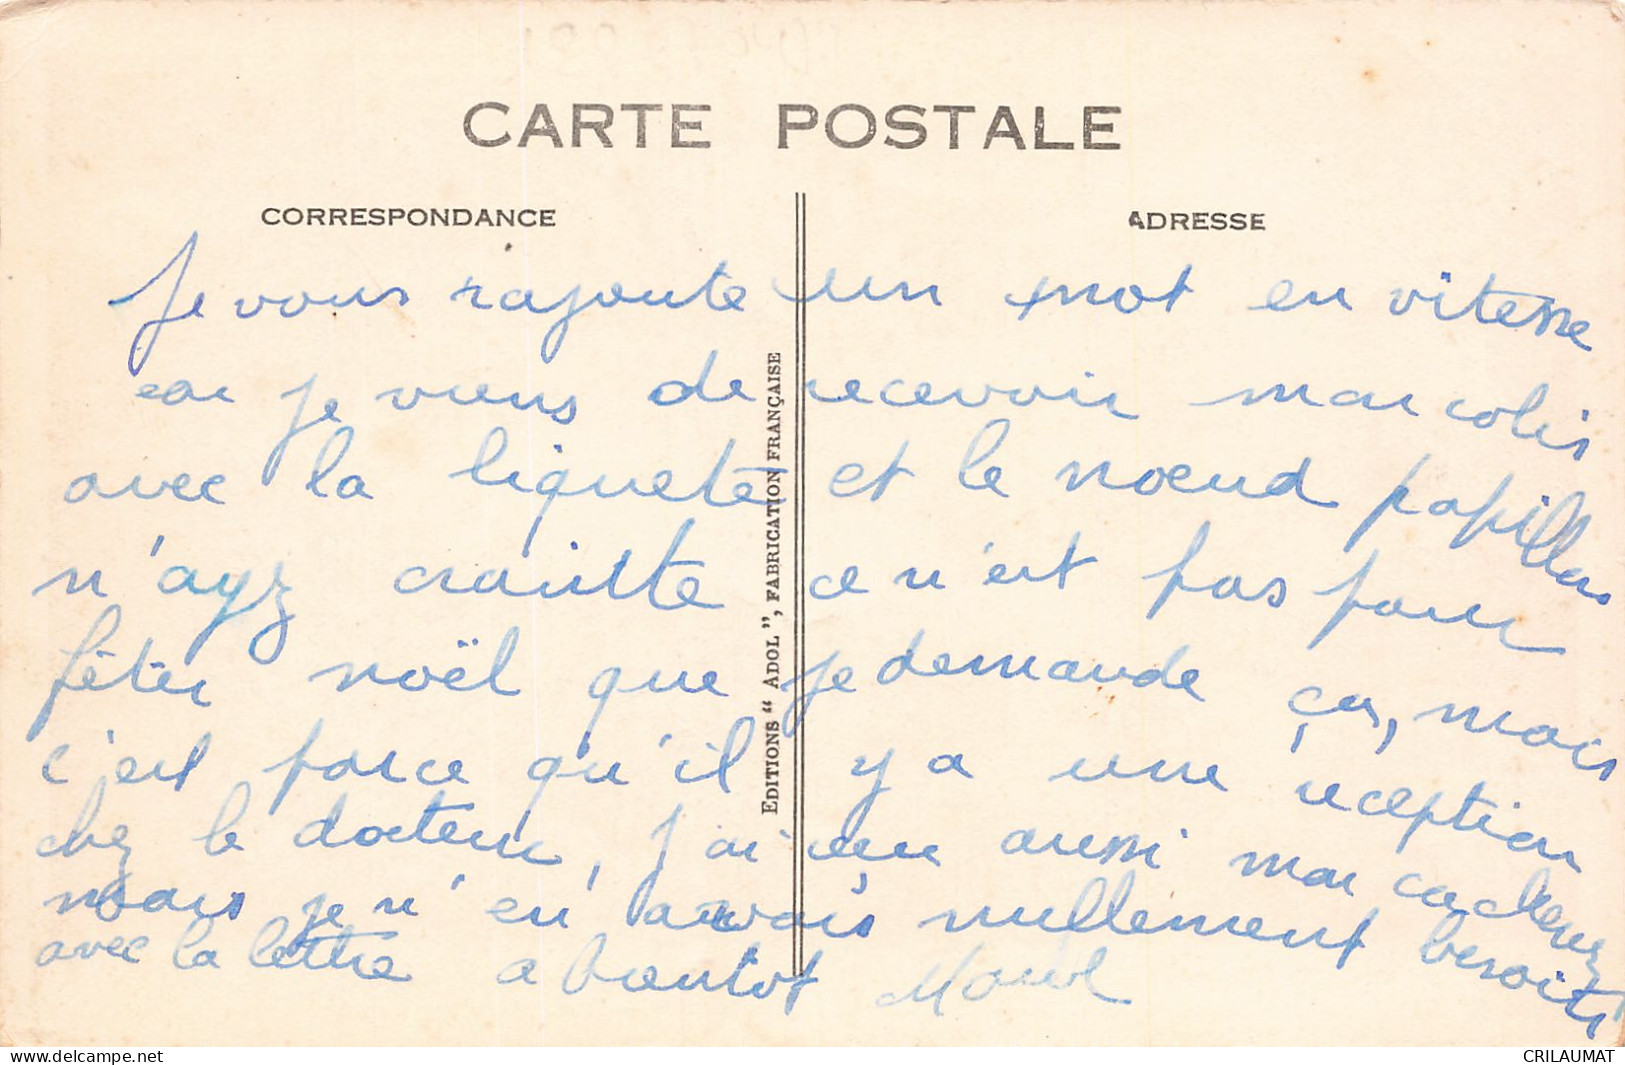 CARTE POSTALE
CORRESPONDANCE
ADRESSE
Je vous rajoute un mot en vitesse
car je viens de recevoir mon colis
avec la liquete et le noeud papillon
n'ayz crainte ce n'est pas pour
fêter noël que je demande ça, mais
c'est parce qu'il y a une réception
chez le docteur, j'ai vu aussi mon cachenez
mais je n'en avais nullement besoin
avec la lettre a bientot
EDITIONS "ADOL", FABRICATION FRANÇAISE
CRILAUMAT